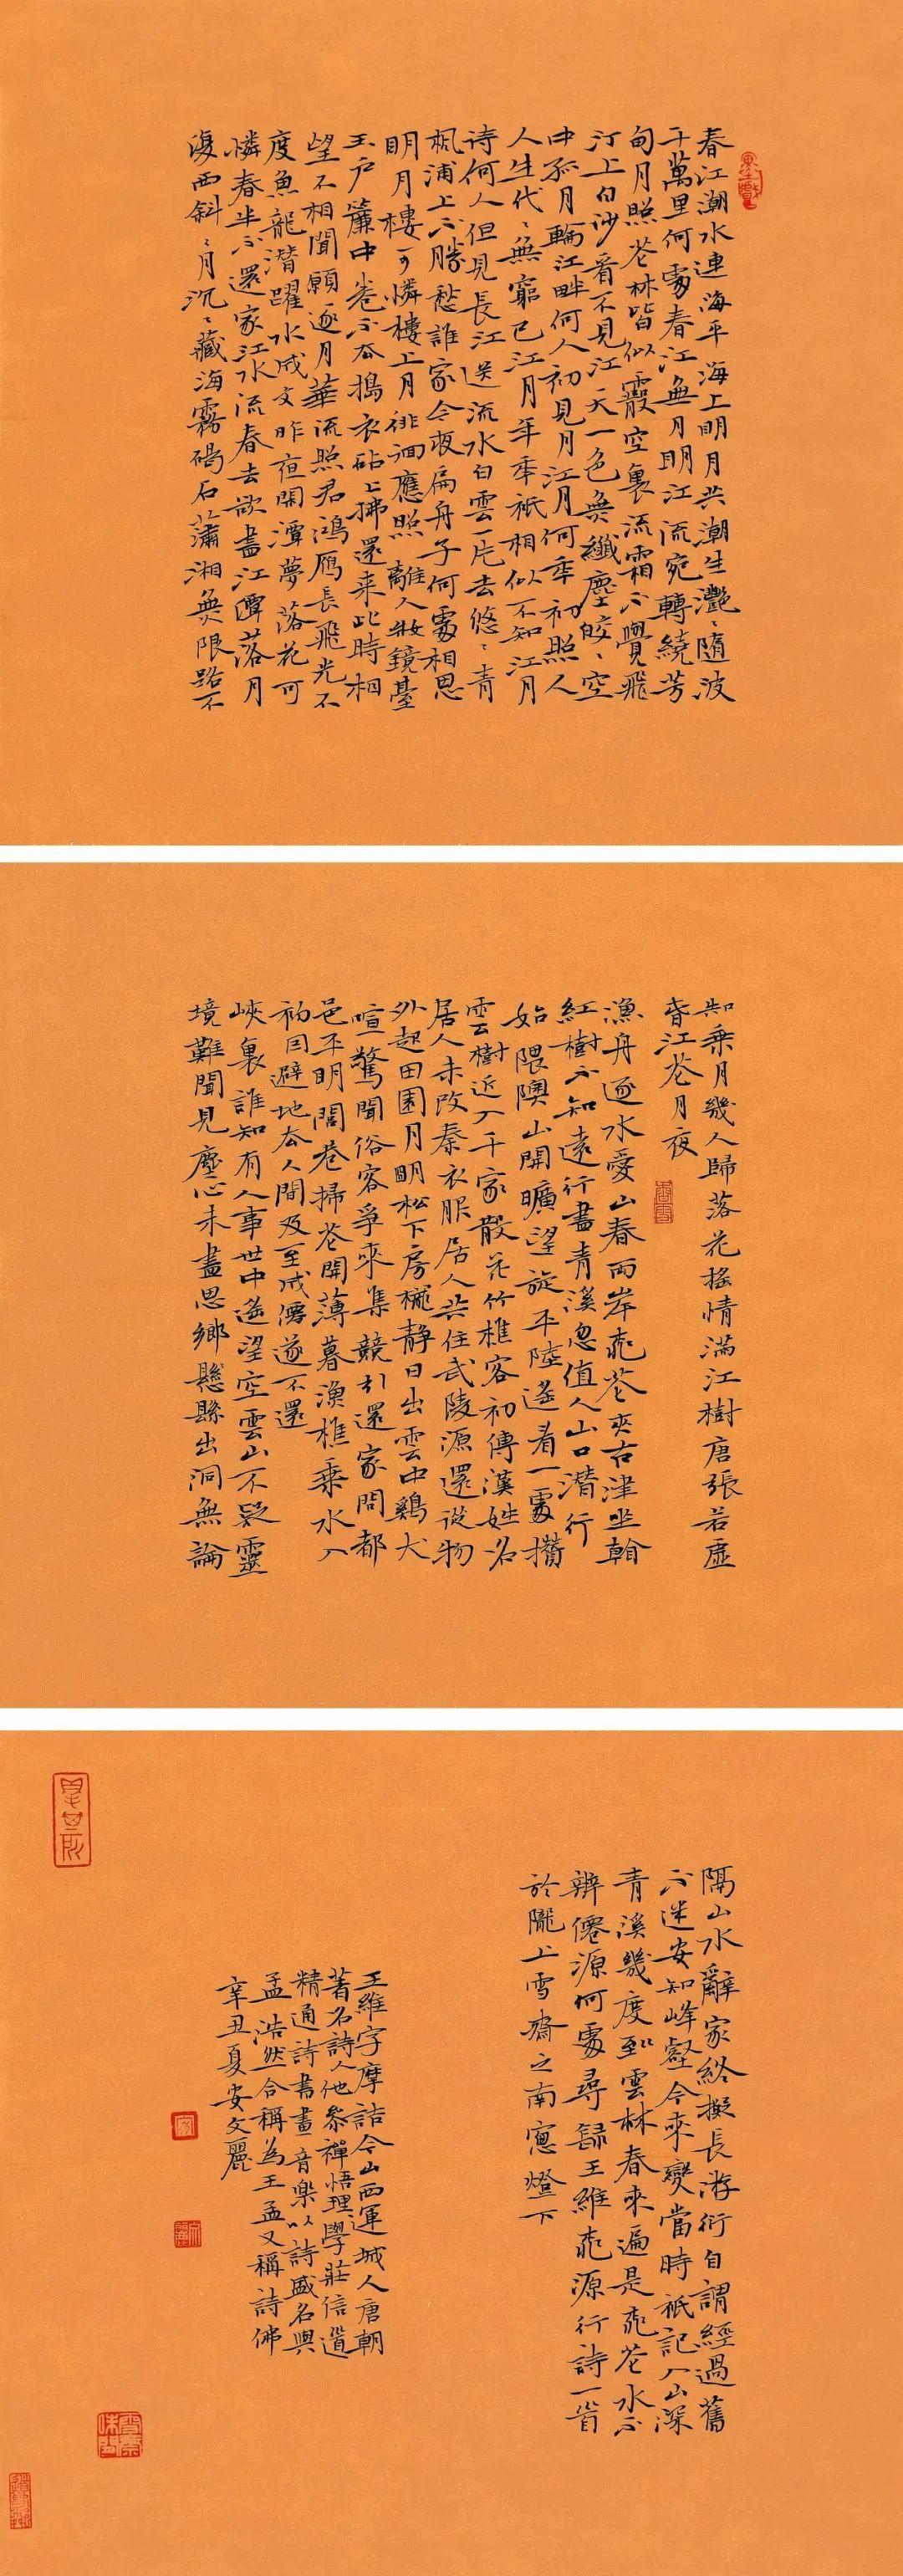 春江潮水連海平海上明月共潮生灔〻隨波
千萬里何處春江無月明江流宛轉繞芳
甸月照花林皆似霰空裏流霜不覺飛
汀上白沙看不見江天一色無纖塵皎〻空
中孤月輪江畔何人初見月江月何年初照人
人生代〻無窮已江月年年祇相似不知江月
待何人但見長江送流水白雲一片去悠〻青
楓浦上不勝愁誰家今夜扁舟子何處相思
明月樓可憐樓上月徘徊應照離人妝鏡臺
玉戶簾中卷不去搗衣砧上拂還来此時相
望不相聞願逐月華流照君鴻雁長飛光不
度魚龍潛躍水成文昨夜閑潭夢落花可
憐春半不還家江水流春去欲盡江潭落月
復西斜〻月沉〻藏海霧碣石瀟湘無限路不
知乘月幾人歸落花搖情滿江樹唐張若虛
春江花月夜
漁舟逐水愛山春兩岸桃花夾古津坐看
紅樹不知遠行盡青溪忽值人山口潛行
始隈隩山開曠望旋平陸遙看一處攢
雲樹近入千家散花竹樵客初傳漢姓名
居人未改秦衣服居人共住武陵源還從物
外起田園月明松下房櫳靜日出雲中雞犬
喧驚聞俗客爭來集競引還家問都
邑平明閭巷掃花開薄暮漁樵乘水入
初因避地去人間及至成僊遂不還
峽裏誰知有人事世中遙望空雲山不疑靈
境難聞見塵心未盡思鄉懸縣出洞無論
隔山水辭家終擬長游衍自謂經過舊
不迷安知峰壑今來變當時祇記入山深
青溪幾度到雲林春來遍是桃花水不
辨僊源何處尋録王維桃源行詩一首
於隴上雪齋之南窗燈下
王維字摩詰今山西運城人唐朝
著名詩人他參禪悟理學莊信道
精通詩書畫音樂以詩盛名與
孟浩然合稱為王孟又稱詩佛
辛丑夏安文麗